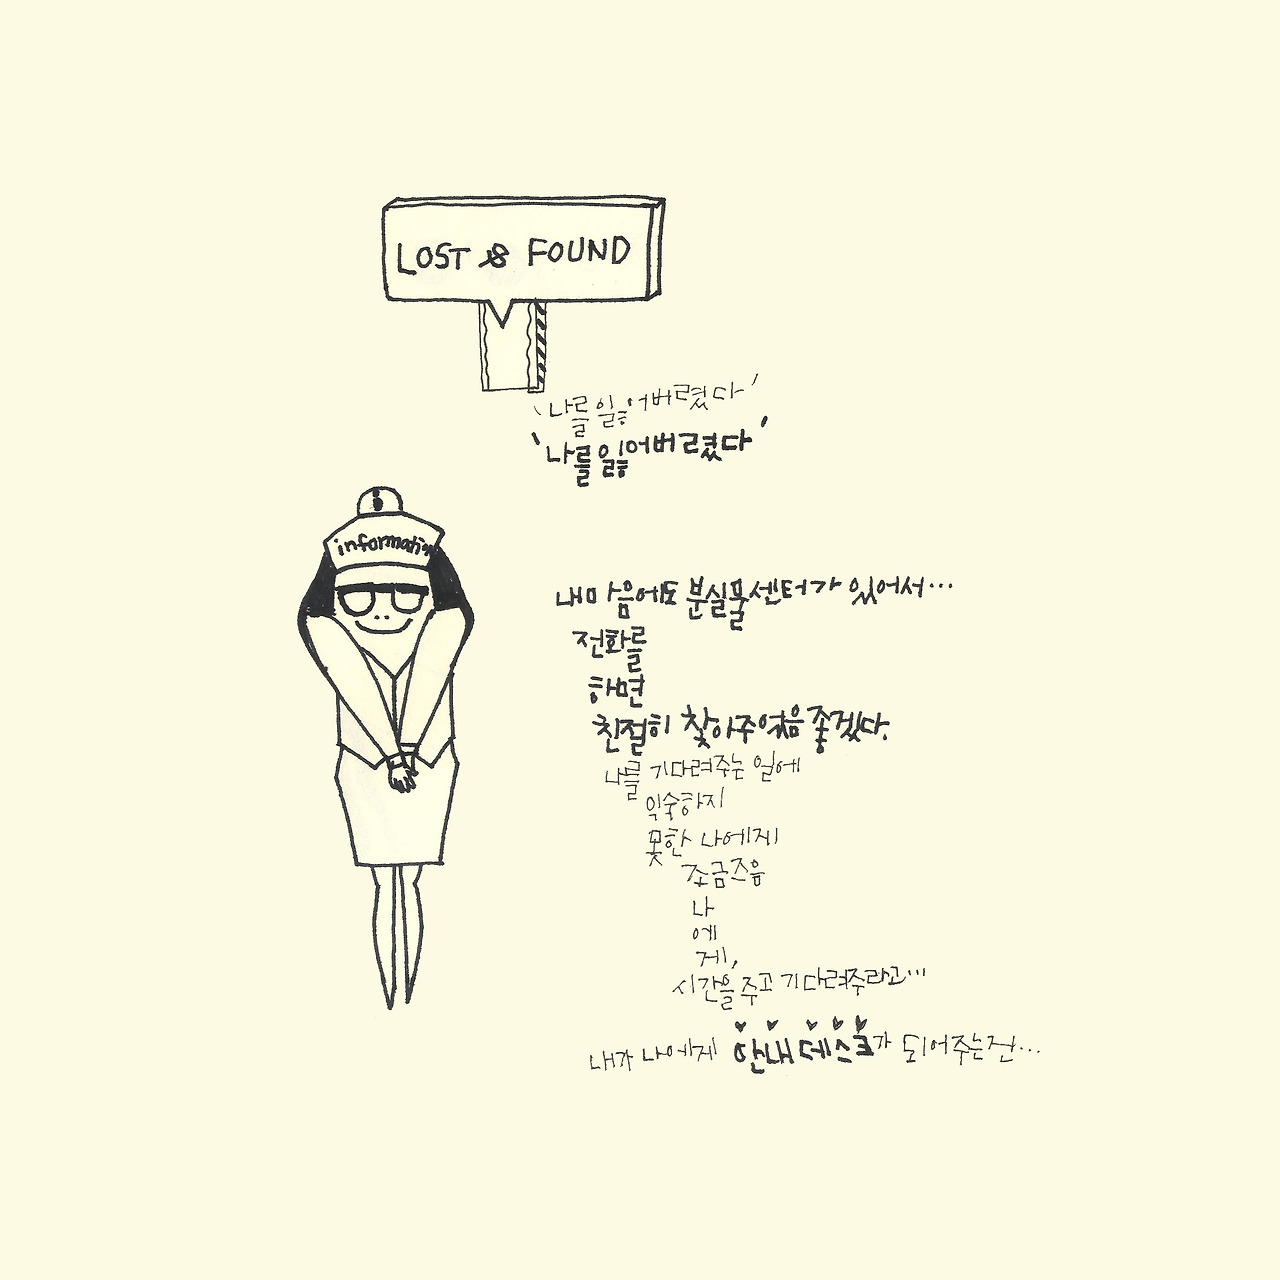 LOST & FOUND
'나를 잃어버렸다'
'나를 잃어버렸다'
information
내 마음에도 분실물센터가 있어서...
전화를
하면
친절히 찾아주었음 좋겠다.
나를 기다려주는 일에
익숙하지
못한 나에게
조금즈음
나
에
게,
시간을 주고 기다려주라고...
내가 나에게 안내데스크가 되어주는건...